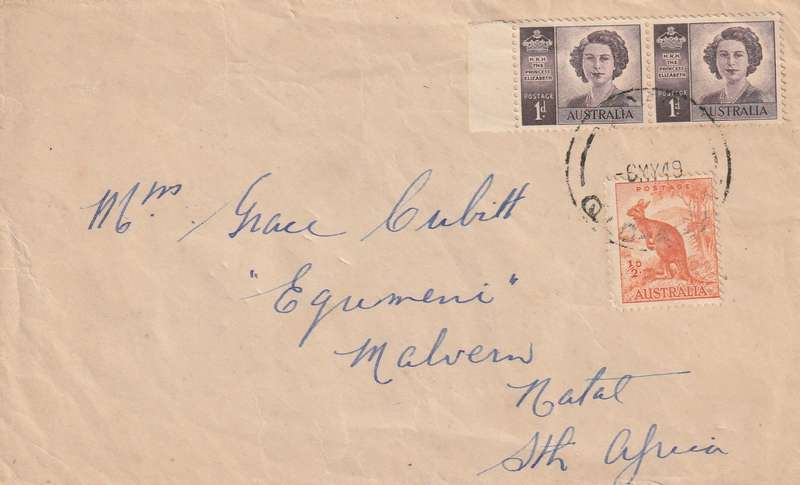 H.R.H. THE PRINCESS ELIZABETH
POSTAGE
1d.
AUSTRALIA
H.R.H. THE PRINCESS ELIZABETH
POSTAGE
1d.
AUSTRALIA
-6MY49
POSTAGE
½D.
AUSTRALIA
Mrs Grace Cubitt
"Egumeni"
Malvern
Natal
Sth Africa